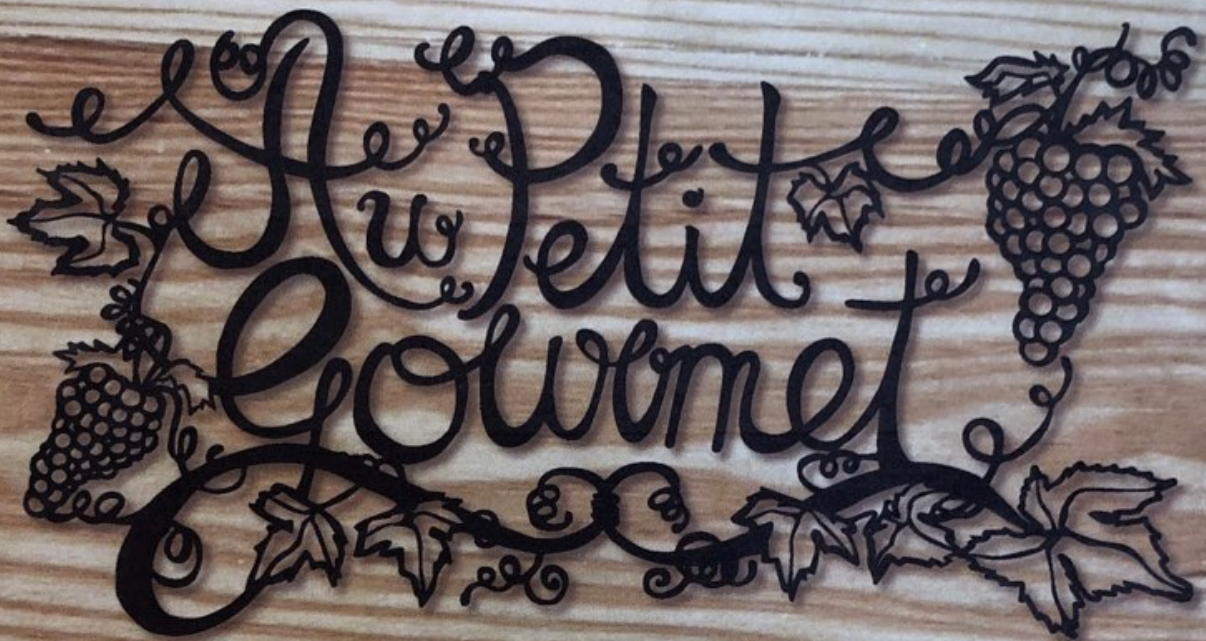 Au Petit
Gourmet